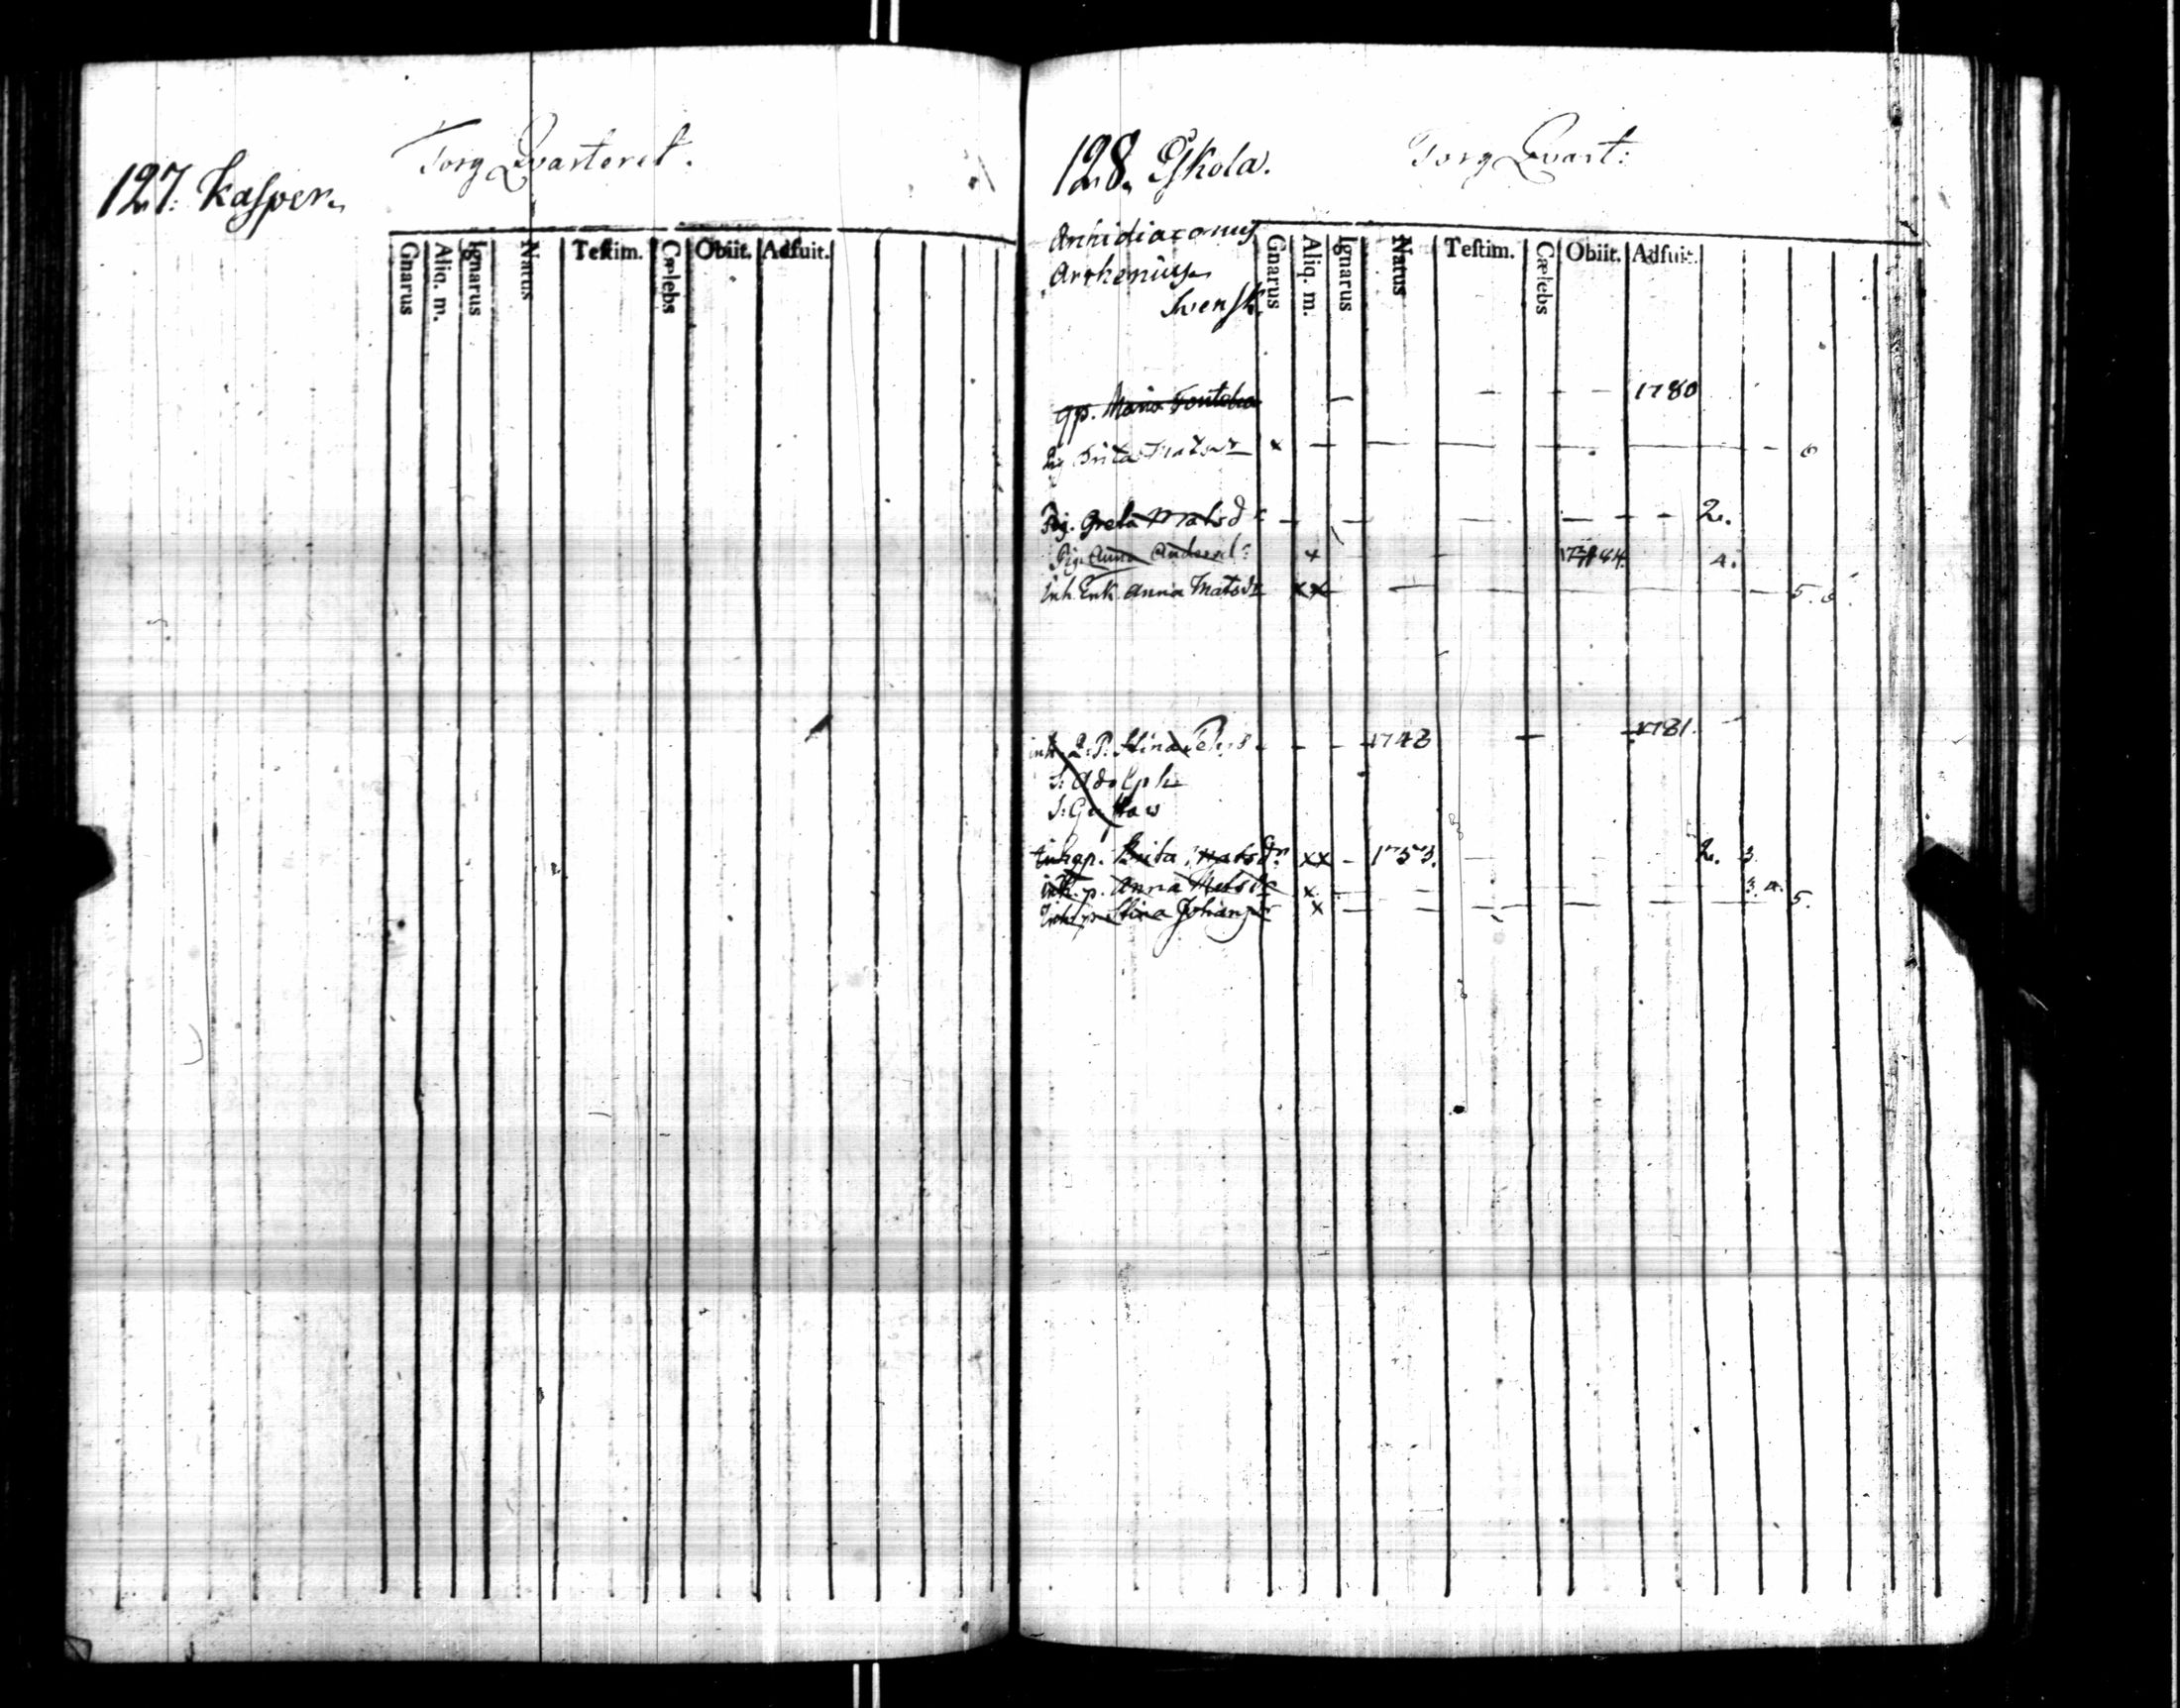 Torg Qvarteret.
127. Kasper.
Gnarus Aliq. m. Ignarus Natus Testim. Cælebs Obiit. Adfuit.
128. Eskola. Torg Qvart:
Archidiaconus
Arrhenius
Svensk.
Gnarus Aliq. m. Ignarus Natus Testim. Cælebs Obiit. Adfuit.
qp. Maria 1780
Brita x 6
Pig. Greta Matsdr 2.
Pig. Anna Andersd: x 4.
Inh. Enk. Anna Matsdr xx 5. 6
inh. Q: P: Stina Pehrs 1743 1781.
S: Adolph
S: Gustaw
Inh. qp. Brita Matsdr xx 1753. 2. 3.
inh. p. Anna Matsdr x 3. 4.
Inh. p. Stina Johansdr x 5.